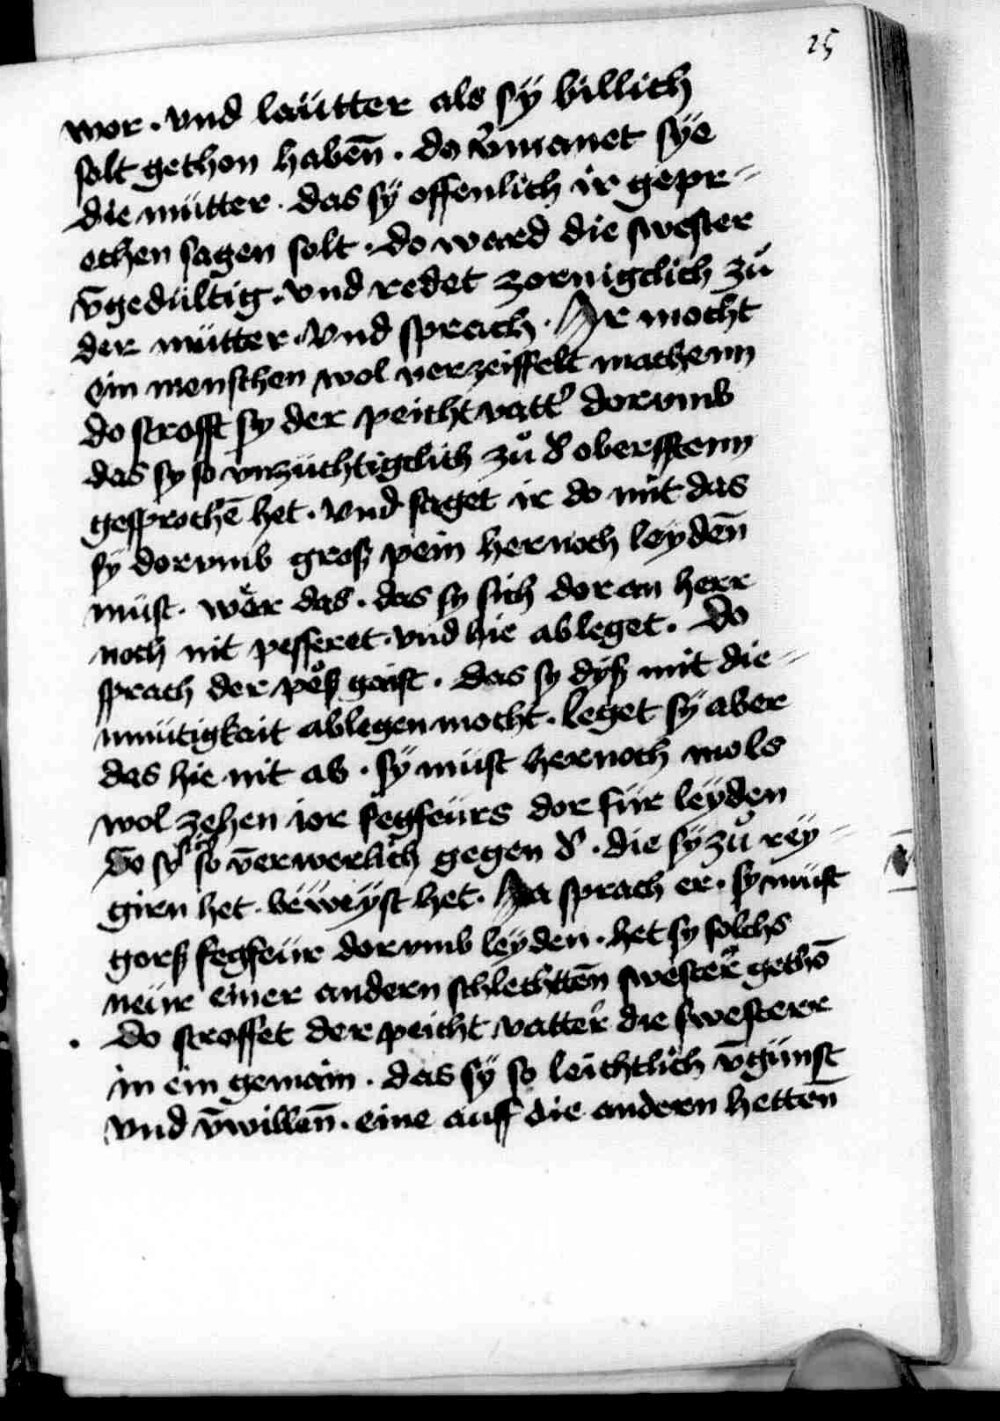 25
wor · vnd laütter als sÿ billich
solt gethon habeñ · do v͛manet sÿe
die mütter · das sÿ offenlich ir gepr=
echen sagen solt · do ward die swester
v̄gedültig · vnd redet zornigclich zů
der mütter · vnd sprach · Jr mocht
ein menschen wol verzeiffelt machenn
do strofft sy der peicht vatt͛ dorvmb
das sy so vnzüchtigclich zů d͛ obersstenn
gessprochē het · vnd saget ir do mit das
sÿ dorvmb groß pein hernoch leÿdeñ
müst · wår das · das sy sich doran herr
noch nit pesseret · vnd hie ableget · Do
sprach der po̊ß gaist · das sy dÿß mit die=
mütigkait ablegen mocht · leget sÿ aber
das hie nit ab · sÿ müst hernoch mols
wol zehen ior fegfeürs dor für leÿden
Do sÿ so v̄erwerlich gegen d͛ · die sÿ zů reÿ=
giren het · beweÿst het · Ja sprach er · sy müst
gorß fegfeür dorvmb leÿden · het sy solchs
neür einer andern schlechtteñ swester gethō
· Do stroffet der peicht vatter die swesterr
in ein gemain · das sÿ so leichtlich v̄günst
vnd v̄willeñ · eine auff die andern hetteñ